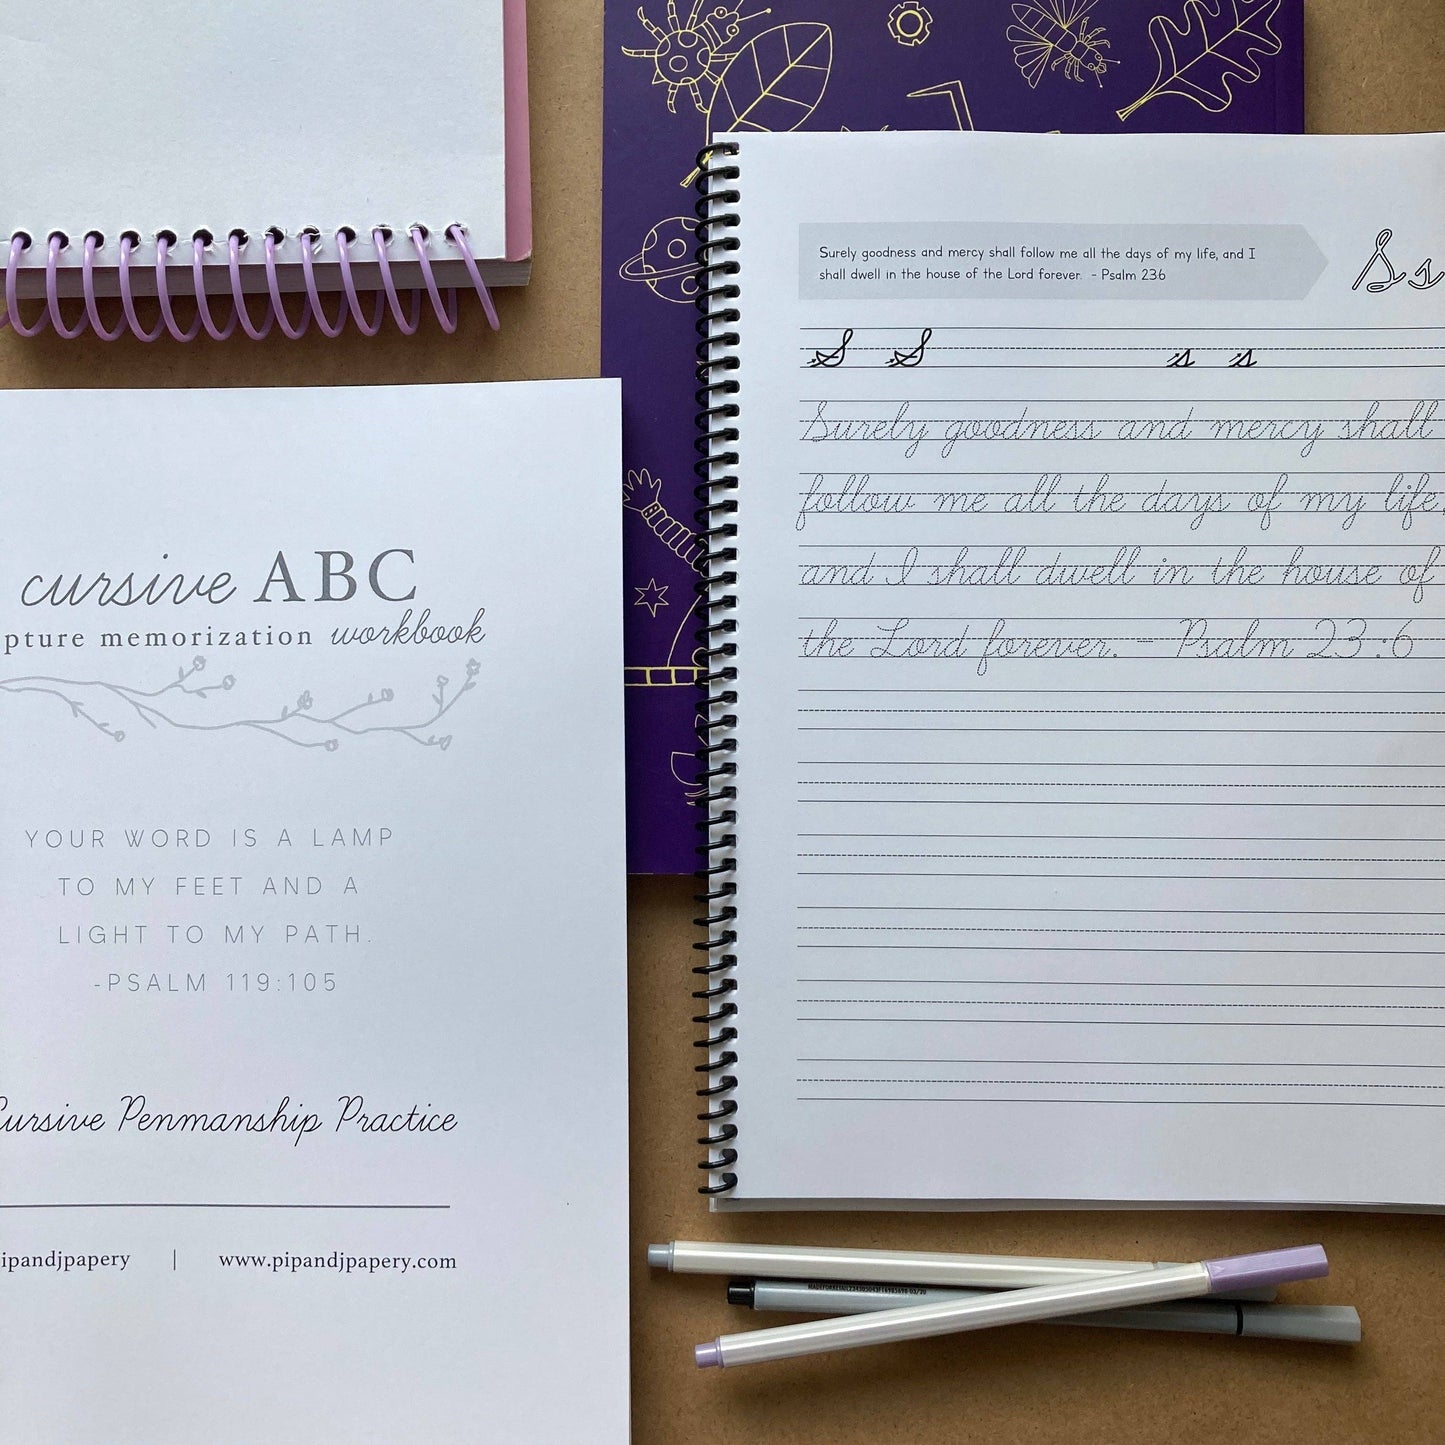 cursive ABC
pture memorization workbook
YOUR WORD IS A LAMP
TO MY FEET AND A
LIGHT TO MY PATH.
-PSALM 119:105
Cursive Penmanship Practice
ipandjpapery | www.pipandjpapery.com
Surely goodness and mercy shall follow me all the days of my life, and I
shall dwell in the house of the Lord forever. - Psalm 236
Ss
S S s s
Surely goodness and mercy shall
follow me all the days of my life,
and I shall dwell in the house of
the Lord forever. - Psalm 23:6